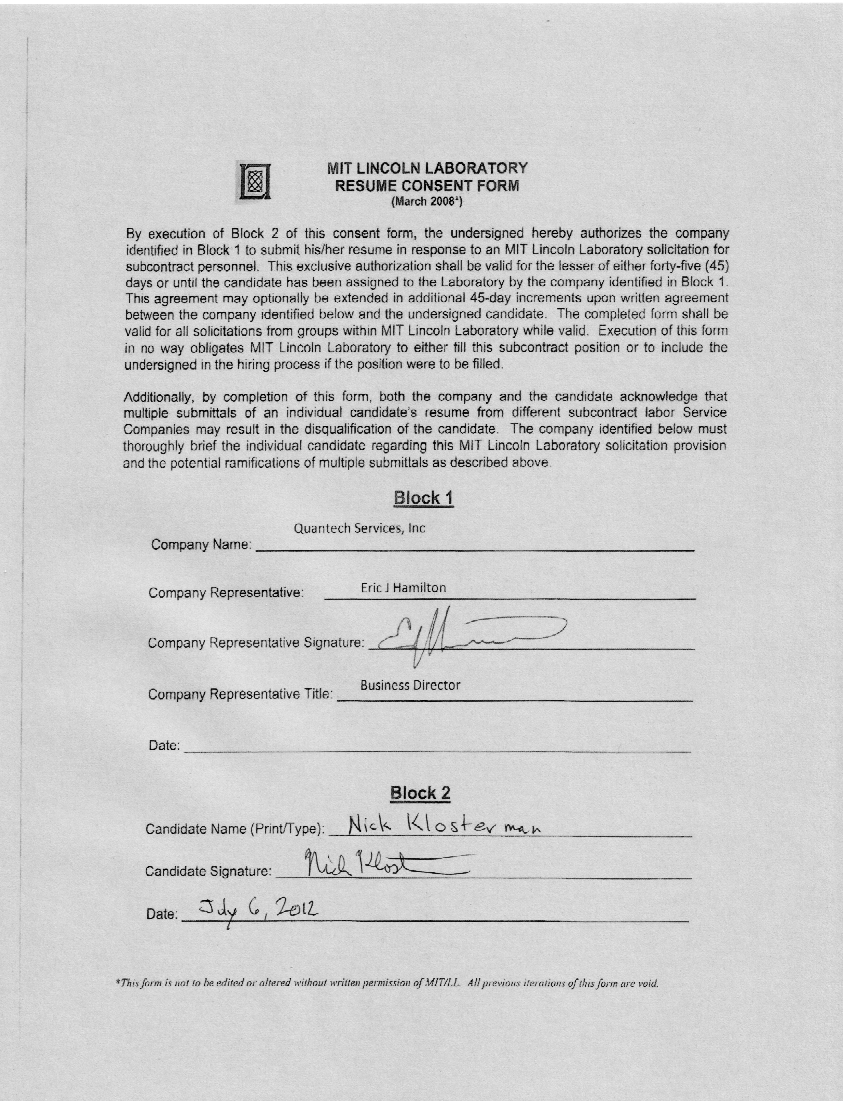 MIT LINCOLN LABORATORY
RESUME CONSENT FORM
(March 2008*)
By execution of Block 2 of this consent form, the undersigned hereby authorizes the company
identified in Block 1 to submit his/her resume in response to an MIT Lincoln Laboratory solicitation for
subcontract personnel. This exclusive authorization shall be valid for the lesser of either forty-five (45)
days or until the candidate has been assigned to the Laboratory by the company identified in Block 1.
This agreement may optionally be extended in additional 45-day increments upon written agreement
between the company identified below and the undersigned candidate. The completed form shall be
valid for all solicitations from groups within MIT Lincoln Laboratory while valid. Execution of this form
in no way obligates MIT Lincoln Laboratory to either fill this subcontract position or to include the
undersigned in the hiring process if the position were to be filled.
Additionally, by completion of this form, both the company and the candidate acknowledge that
multiple submittals of an individual candidate's resume from different subcontract labor Service
Companies may result in the disqualification of the candidate. The company identified below must
thoroughly brief the individual candidate regarding this MIT Lincoln Laboratory solicitation provision
and the potential ramifications of multiple submittals as described above.
Block 1
Company Name: Quantech Services, Inc
Company Representative: Eric J Hamilton
Company Representative Signature:
Company Representative Title: Business Director
Date:
Block 2
Candidate Name (Print/Type): Nick Klosterman
Candidate Signature: Nick Klost
Date: July 6, 2012
*This form is not to be edited or altered without written permission of MIT/LL. All previous iterations of this form are void.